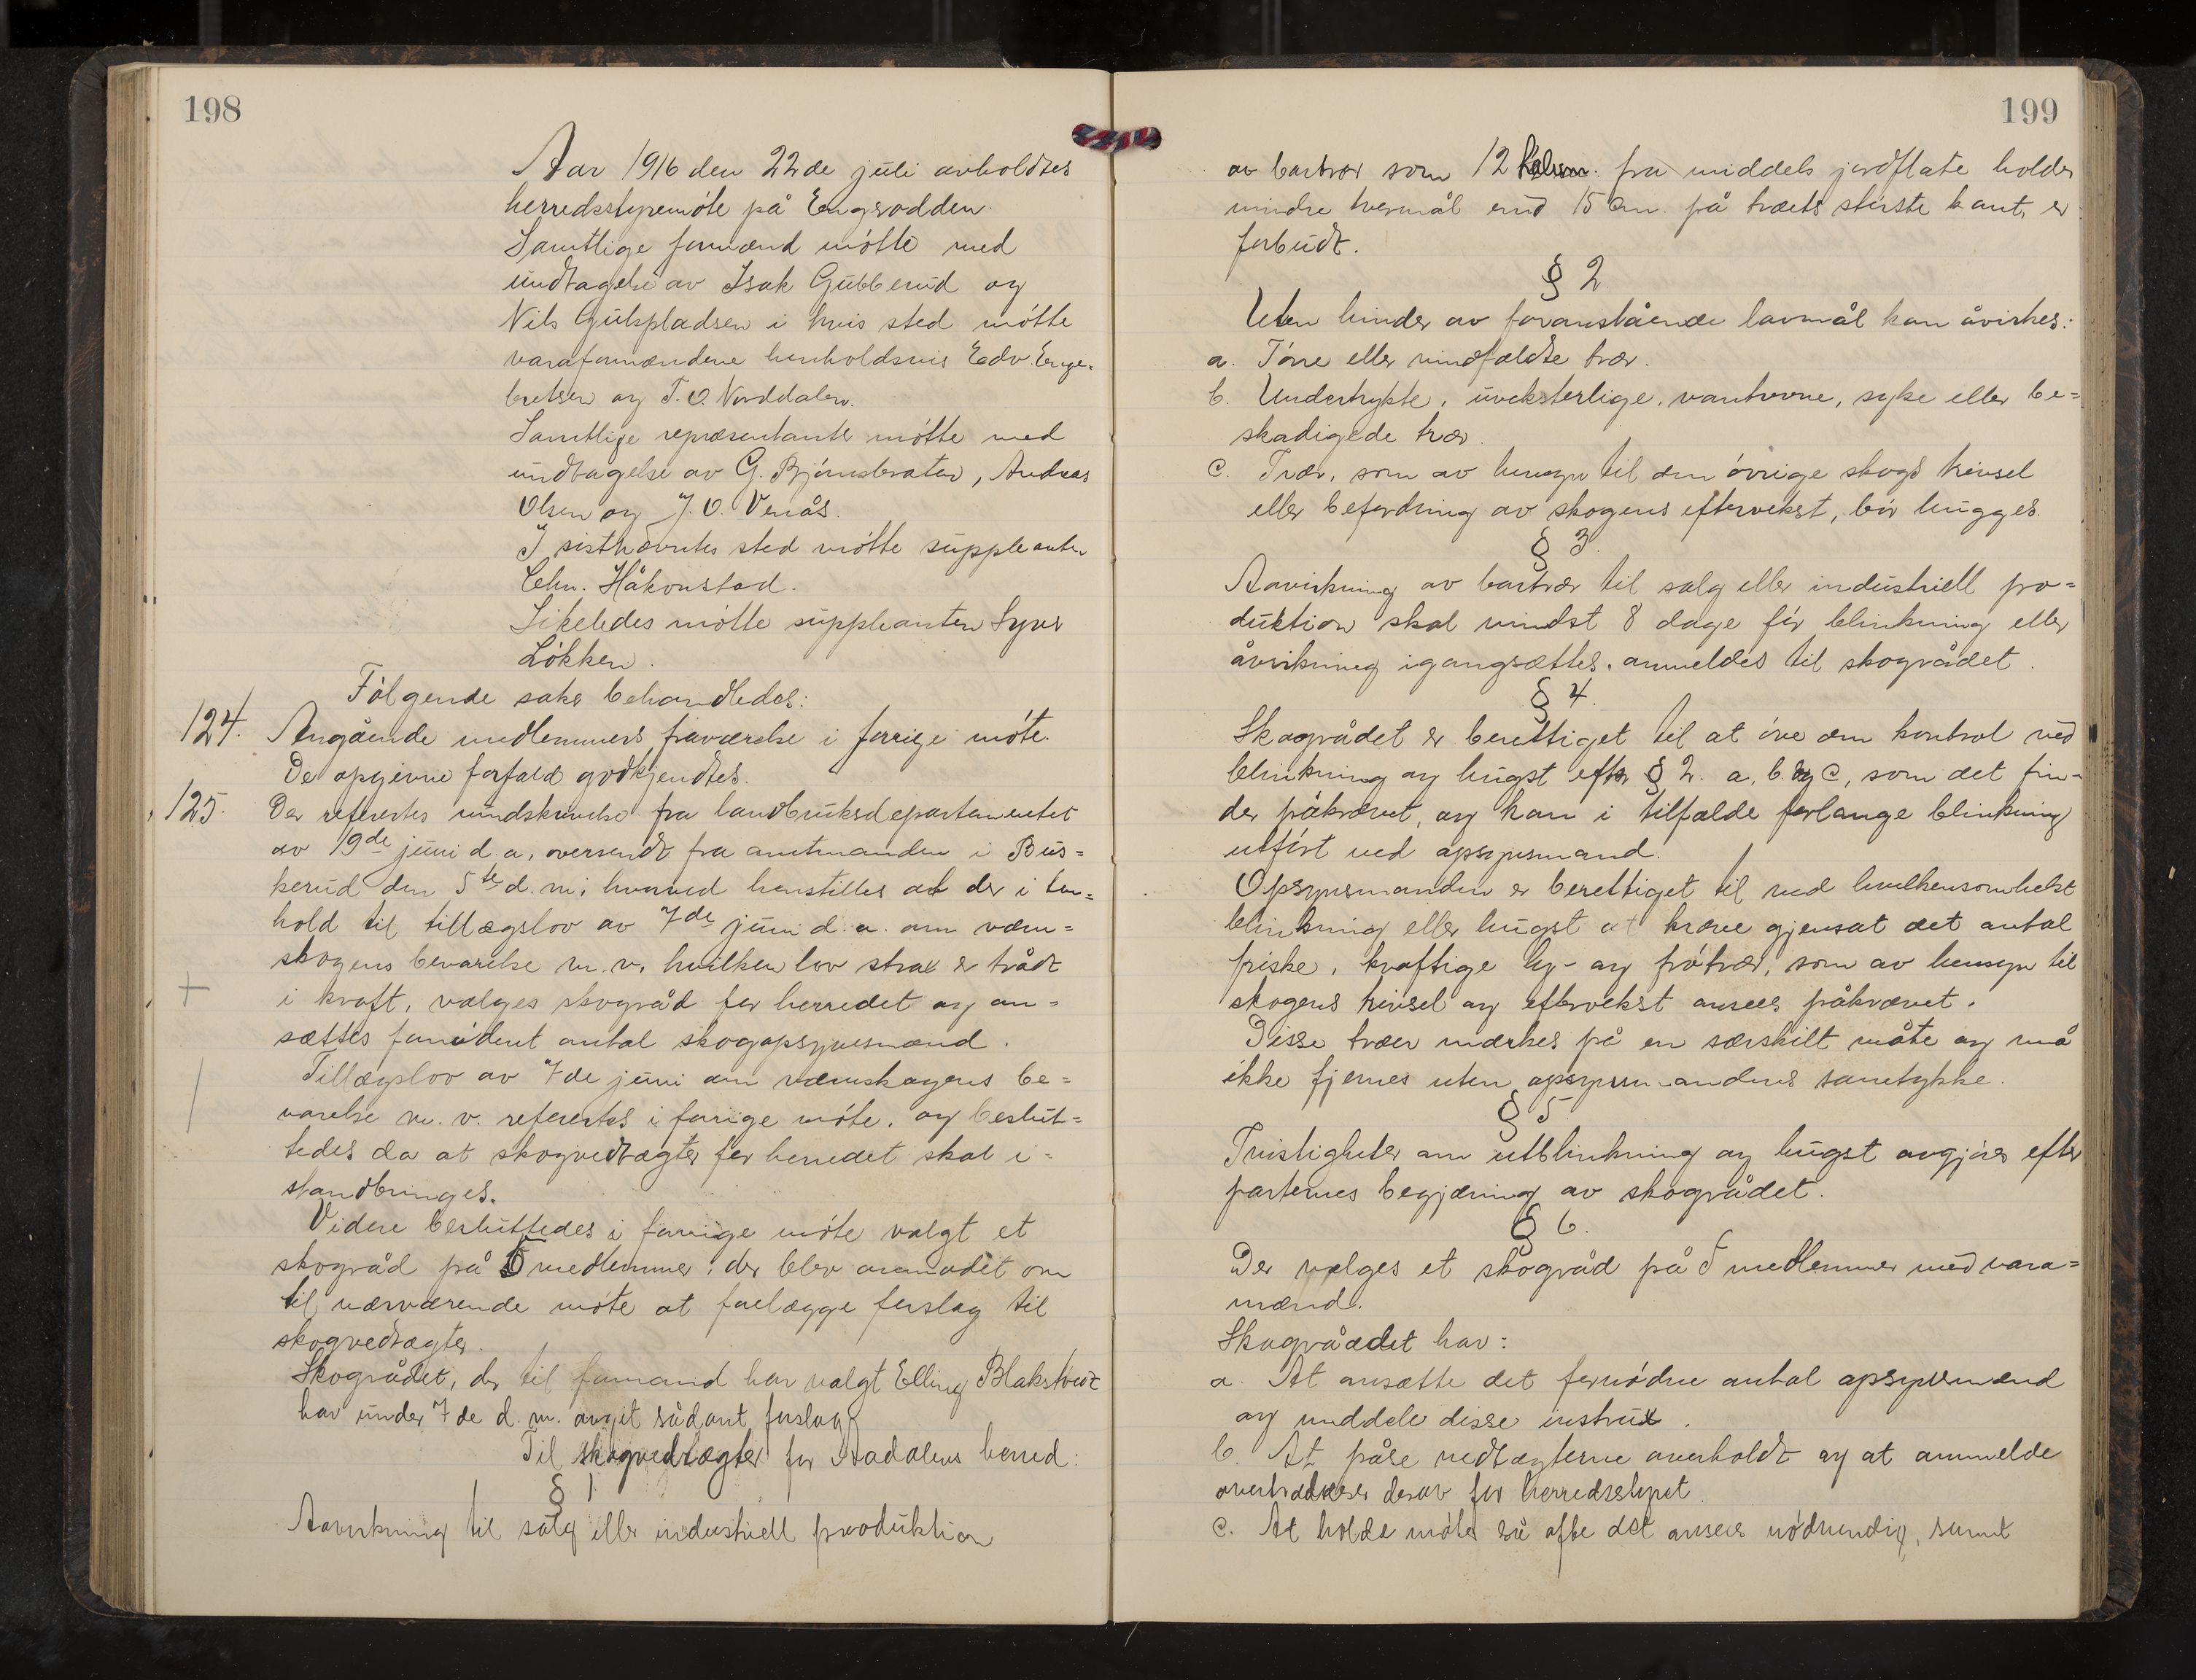 198
Aar 1916 den 22de juli avholdtes
herredsstyremöte på Engerodden.
Samtlige formænd mötte med
undtagelse av Isak Gubberud og
Nils Gulspladsen i hvis sted mötte
varaformændene henholdsvis Edv. Enge-
bretsen og T. O. Norddalen.
Samtlige repræsentanter mötte med
undtagelse av G. Björnsbråten, Andreas
Olsen og J. O. Venås.
I sistnævntes sted mötte suppleanten
Chr. Håkonstad.
Likeledes mötte suppleanten Syver
Lökken.
Fölgende saker behandledes:
124. Angående medlemmers fraværelse i forrige möte.
De opgivne forfald godkjendtes.
125. Der refereertes rundskrivelse fra landbruksdepartementet
av 19de juni d.a, oversendt fra amtmanden i Bus=
kerud den 5te d.m, hvorved henstilles at der i hen=
hold til tillægslov av 7de juni d.a. om værn=
skogens bevarelse m.v. hvilken lov strax er trådt
i kraft, vælges skogråd for herredet og an=
sættes fornödent antal skogopsynsmænd.
Tillægslov av 7de juni om værnskogens be=
varelse m.v. referertes i forrige möte. og beslut=
tedes da at skogvedtægter for herredet skal i=
standbringes.
Videre besluttedes i forrige möte valgt et
skogråd på 5 medlemmer, der blev anmodet om
til nærværende möte at forelægge forslag til
skogvedtægter.
Skogrådet, der til formand har valgt Elling Blakstvedt
har under 7de d.m. avgit sådant forslag
Til skogvedtægter for Aadalens herred:
§ 1
Aavirkning til salg eller industriell produktion
199
av bartrær som 12 fra middels jordflate holder
mindre tvermål end 15 cm. på træets störste kant, er
forbudt.
§ 2
Uten hinder av foranstående lavmål kan åvirkes:
a. Törre eller vindfældte trær.
b. Undertrykte, uveksterlige, vantrevne, syke eller be=
skadigede trær.
c. Trær, som av hensyn til den övrige skogs trivsel
eller befordring av skogens eftervekst, bör hugges.
§ 3.
Aavirkning av bartrær til salg eller industriell pro=
duktion skal mindst 8 dage för blinkning eller
åvirkning igangsættes, anmeldes til skogrådet.
§ 4.
Skogrådet er berettiget til at öve den kontrol ved
blinkning og hugst efter § 2. a, b. og c, som det fin-
der påkrævet, og kan i tilfælde forlange blinkning
utfört ved opsynsmand.
Opsynsmanden er berettiget til ved hvilkensomhelst
blinkning eller hugst at kræve gjensat det antal
friske, kraftige ly- og frötrær, som av hensyn til
skogens trivsel og eftervekst ansees påkrævet.
Disse træer mærkes på en særskilt måte og må
ikke fjernes uten opsynsmandens samtykke.
§ 5
Tvistigheter om utblinkning og hugst avgjöres efter
parternes begjæring av skogrådet.
§ 6.
Der vælges et skogråd på 5 medlemmer med vara=
mænd.
Skogråædet har:
a. At ansætte det fornödne antal opsynsmænd
og meddele disse instrux.
b. At påse vedtægterne overholdt og at anmelde
overtrædelser derav for herredsstyret.
c. At holde möter så ofte det ansees nödvendig, samt